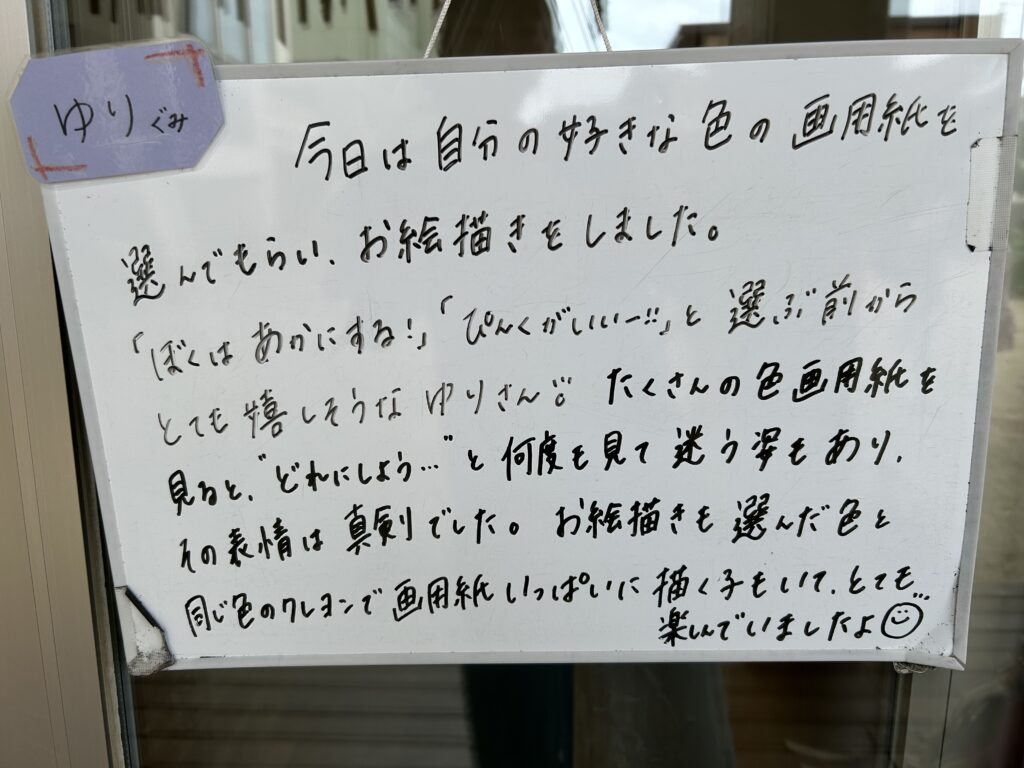 ゆりぐみ
今日は自分の好きな色の画用紙を
選んでもらい、お絵描きをしました。
「ぼくはあかにする!」「ぴんくがいいー!!」と選ぶ前から
とても嬉しそうなゆりさん たくさんの色画用紙を
見ると、"どれにしよう…"と何度も見て迷う姿もあり、
その表情は真剣でした。お絵描きも選んだ色と
同じ色のクレヨンで画用紙いっぱいに描く子もいて、とても…
楽しんでいましたよ